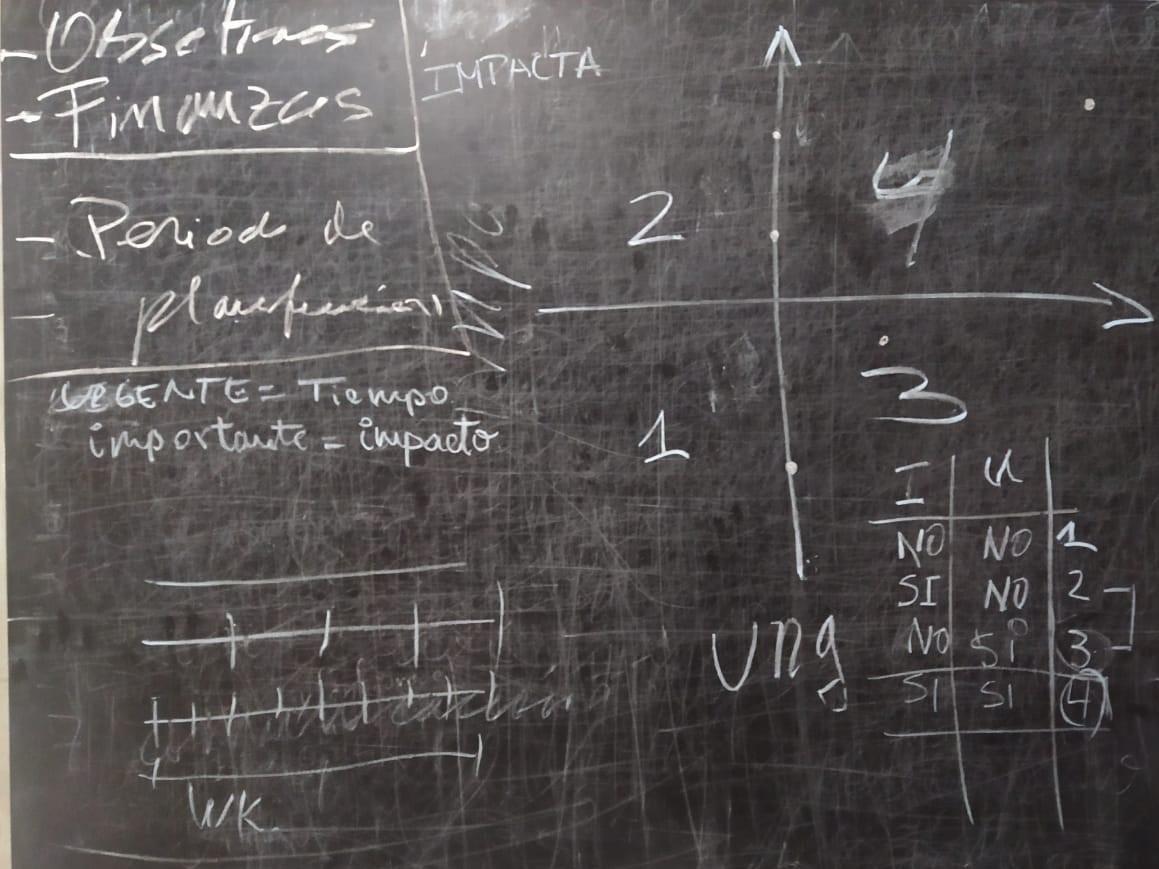 - Finanzas
- Periodo de
- planificación
URGENTE = Tiempo
importante = impacto
IMPACTA
2
4
1
3
I U
NO NO 1
SI NO 2
NO Si 3
SI SI 4
Urg
WK.